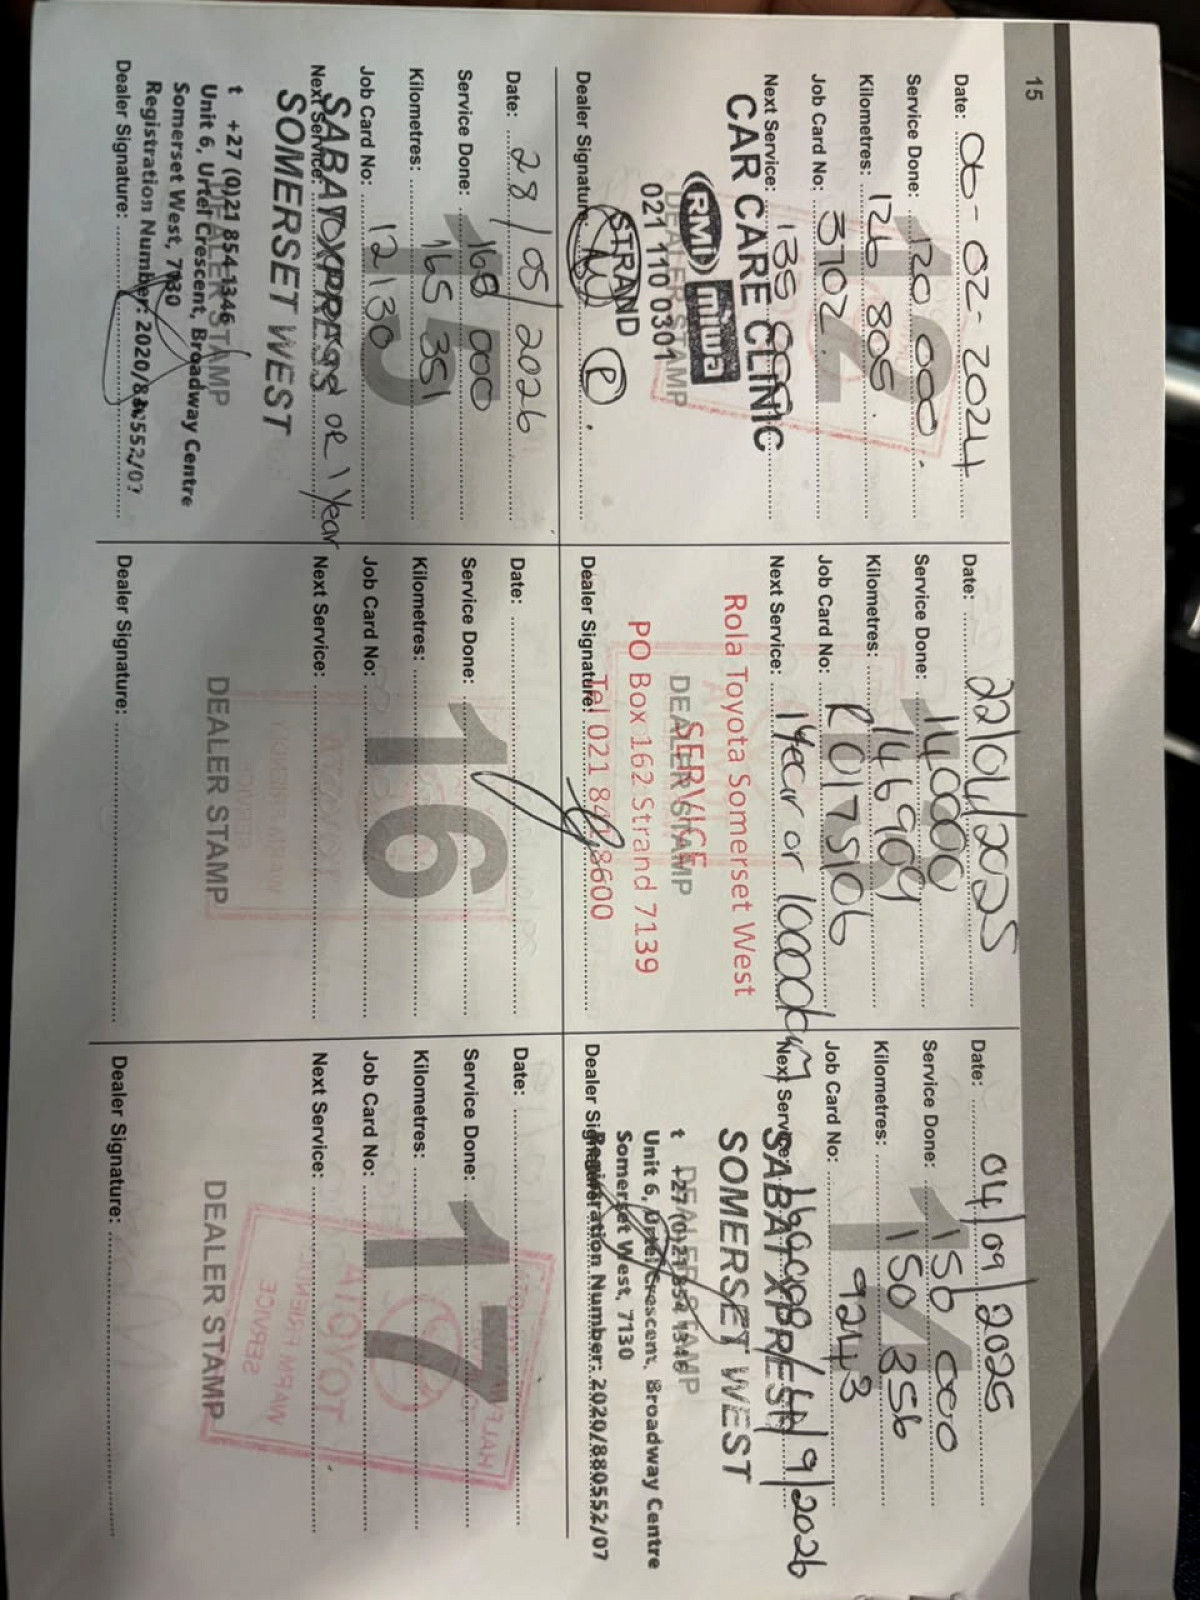 15
Date: 06-02-2024
Service Done: 120 000.
Kilometres: 126 805.
Job Card No: 3702.
Next Service: 135 000
12
CAR CARE CLINIC
RMI miwa
DEALER STAMP
021 110 0301
STRAND
Dealer Signature:
P
Date: 22/04/2025
Service Done: 140000
Kilometres: 146909
Job Card No: R0175106
Next Service: 1Year or 10000km
Rola Toyota Somerset West
SERVICE
DEALER STAMP
PO Box 162 Strand 7139
Tel 021 8600
Dealer Signature:
Date: 04/09/2025
Service Done: 150 000
Kilometres: 150 356
Job Card No: 9243
Next Service: /9/2026
14
SABAT XPRESS
SOMERSET WEST
DEALER STAMP
t +27 (0)21 854 1346
Unit 6, Urtel Crescent, Broadway Centre
Somerset West, 7130
Registration Number: 2020/880552/07
Dealer Signature:
Date: 28/05/2026
Service Done: 160 000
Kilometres: 165 351
Job Card No: 12130
Next Service: or 1 Year
15
SABAT XPRESS
SOMERSET WEST
DEALER STAMP
t +27 (0)21 854 1346
Unit 6, Urtel Crescent, Broadway Centre
Somerset West, 7130
Registration Number: 2020/880552/07
Dealer Signature:
Date:
Service Done:
Kilometres:
Job Card No:
Next Service:
16
DEALER STAMP
Dealer Signature:
Date:
Service Done:
Kilometres:
Job Card No:
Next Service:
17
DEALER STAMP
Dealer Signature: